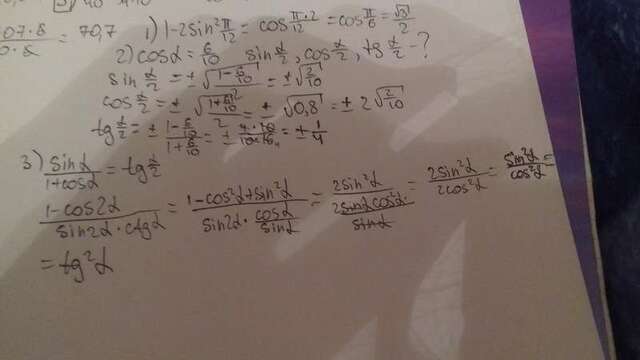 07·8 / 0·8 = 70,7
1) 1-2sin²π/12 = cos π·2/12 = cos π/6 = √3/2
2) cosα = 6/10 sin α/2, cos α/2, tg α/2 - ?
sin α/2 = ±√(1-6/10 / 2) = ±√(2/10)
cos α/2 = ±√(1+6/10 / 2) = ±√0,8 = ±2√(2/10)
tg α/2 = ± (1-6/10)/(1+6/10) = ± 4·10/10·16 = ± 1/4
3) sinα/(1+cosα) = tg α/2
(1-cos2α)/(sin2α·ctgα) = (1-cos²α+sin²α)/(sin2α·cosα/sinα) = 2sin²α/(2sinαcos²α/sinα) = 2sin²α/2cos²α = sin²α/cos²α =
= tg²α